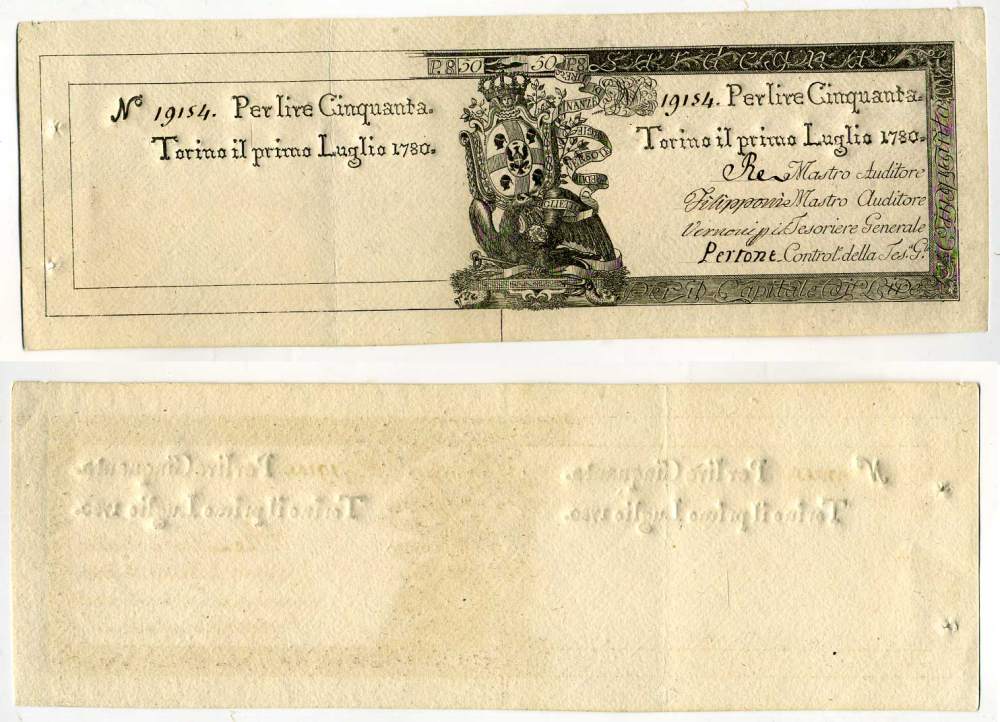 P. 8. 50 50 P. 8.
Sardegna
Nº 19154. Per lire Cinquanta.
Torino il primo Luglio 1780.
FINANZE
VERSO LE
BIGLIETTI
19154. Per lire Cinquanta.
Torino il primo Luglio 1780.
Re Mastro Auditore
Filipponi Mastro Auditore
Vernoni Tesoriere Generale
Perrone Control.e della Tes.a G.le
Per il Capitale di Lire
Per lire Cinquanta. 19154. Nº
Torino il primo Luglio 1780.
Per lire Cinquanta.
Torino il primo Luglio 1780.